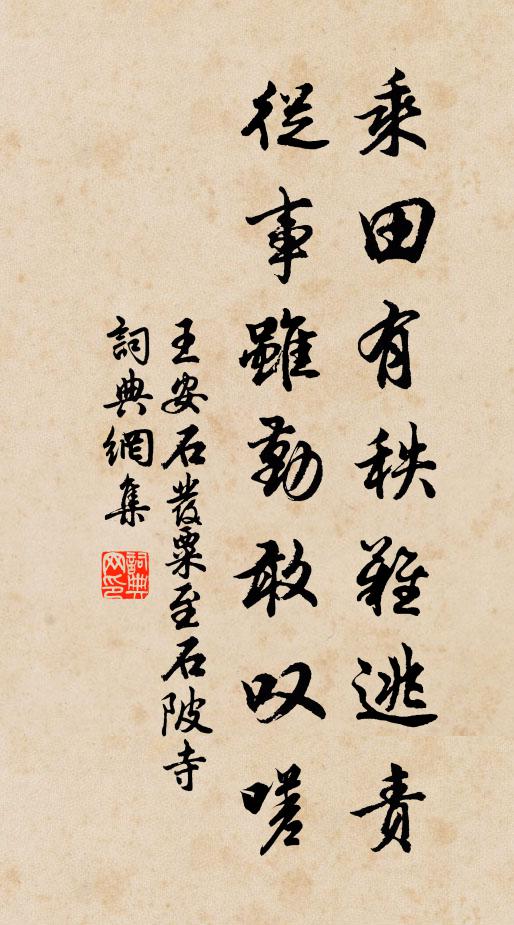 乘田有秩難逃責
從事雖勤敢叹嗟
王安石發粟至石陂寺
詞典網集
詞典网印